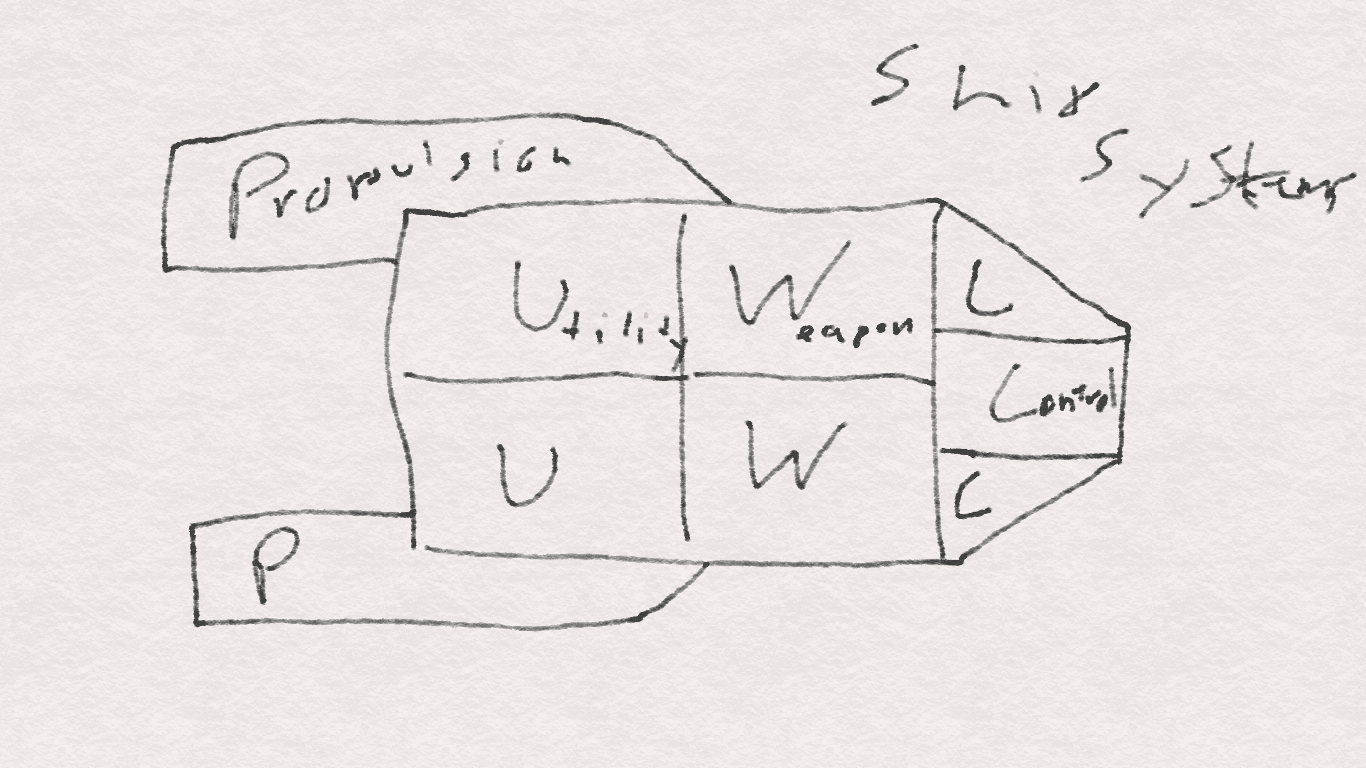 Ship
Systems
Propulsion
Utility
Weapon
C
Control
U
W
C
P